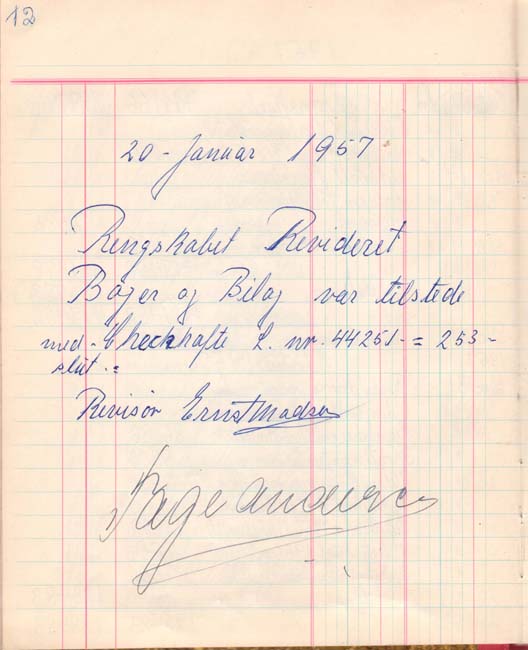 12
20 - Januar 1957
Rengskabet Revideret
Bøger og Bilag var tilstede
med - Checkhæfte L. nr. 44251 - = 253 -
slut. =
Revisor Ernst Madsen
Aage Andersen